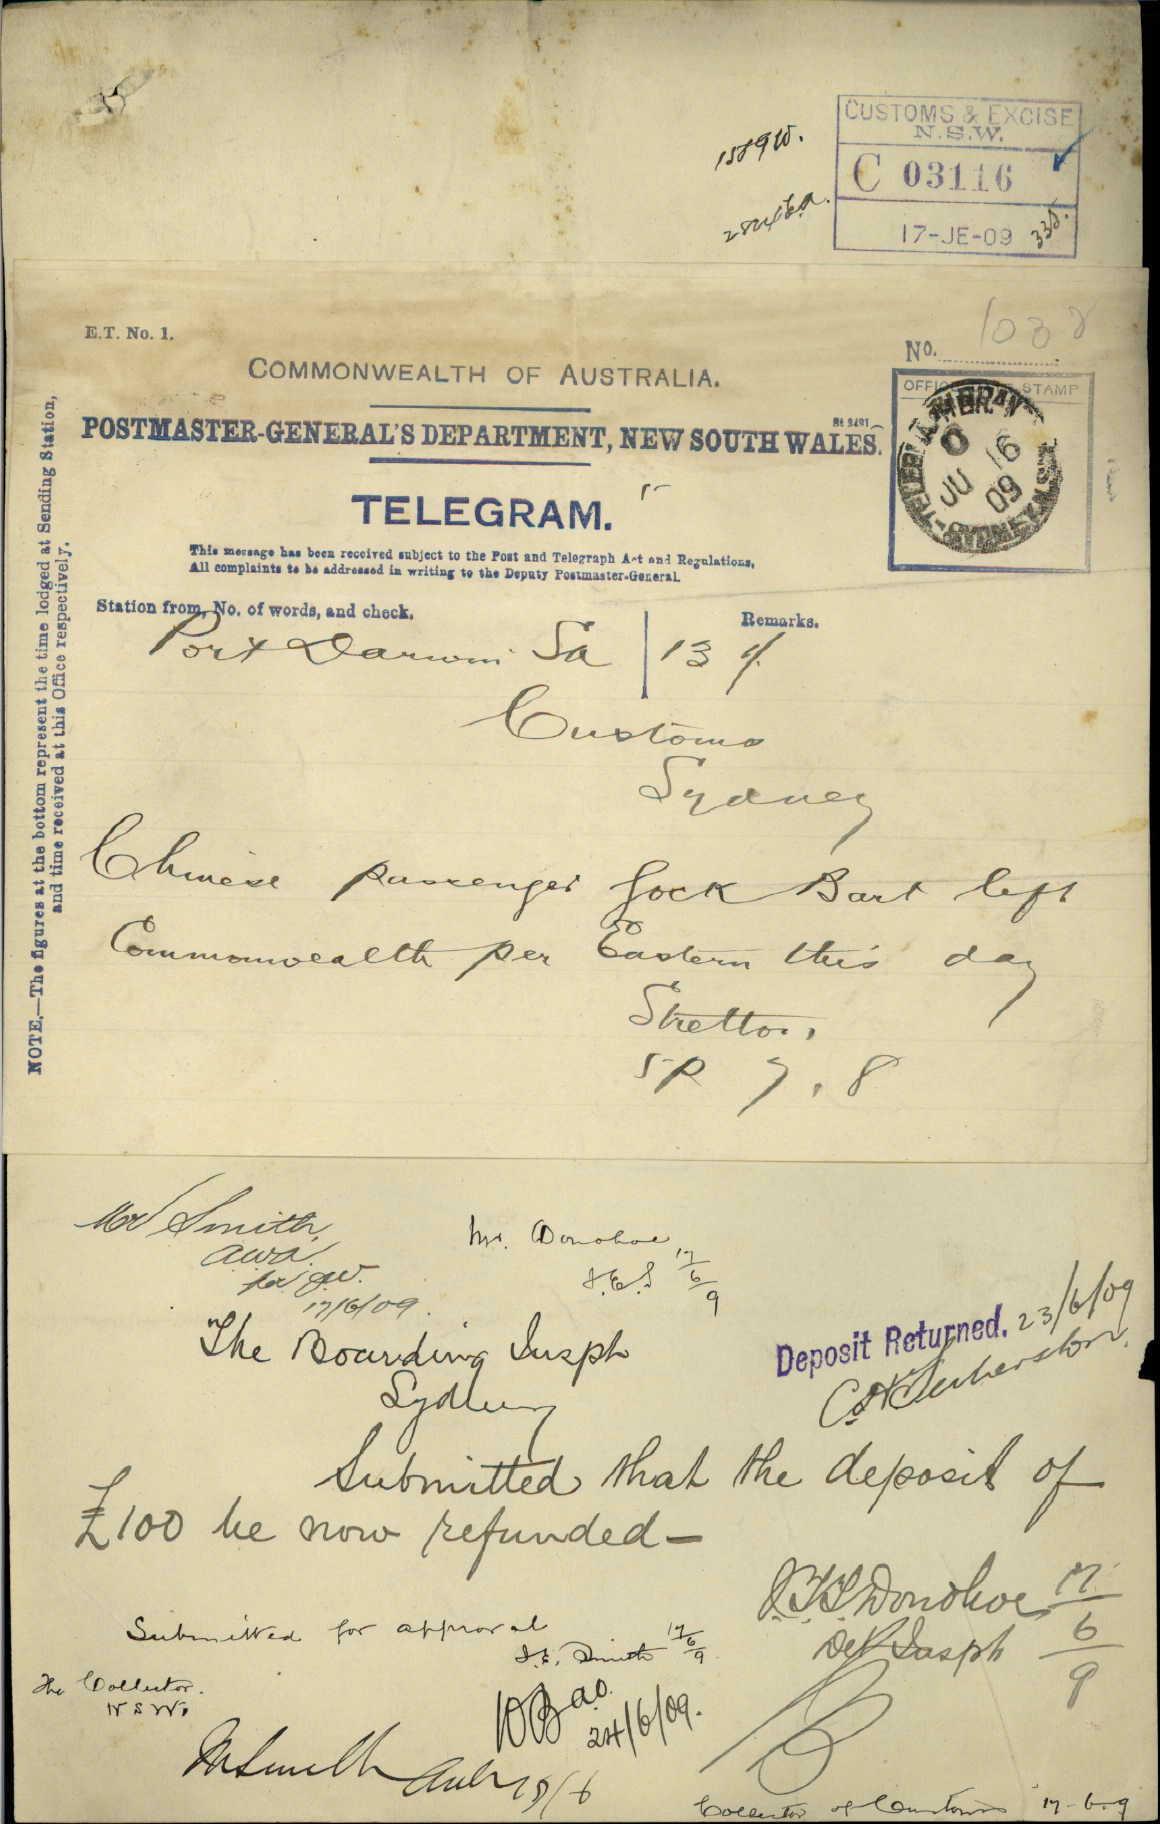 CUSTOMS & EXCISE
N.S.W.
C 03116
17-JE-09
335.
E.T. No. 1.
No. 1038
COMMONWEALTH OF AUSTRALIA.
POSTMASTER-GENERAL'S DEPARTMENT, NEW SOUTH WALES.
TELEGRAM.
This message has been received subject to the Post and Telegraph Act and Regulations,
All complaints to be addressed in writing to the Deputy Postmaster-General.
OFFICE STAMP
JU 16
09
SYDNEY N.S.W
NOTE.—The figures at the bottom represent the time lodged at Sending Station,
and time received at this Office respectively.
Station from, No. of words, and check.
Remarks.
Port Darwin Sa 13
Customs
Sydney
Chinese passenger Gock Bart left
Commonwealth per Eastern this day
Stretton
5P 7.8
Mr Smith,
17/6/09.
Mr. Donohoe
J.E.S 17/6/9
The Boarding Inspr
Sydney
Deposit Returned. 23/6/09
Submitted that the deposit of
£100 be now refunded—
J.T.T. Donohoe 17/6/9
Det Inspr
Submitted for approval
J.E. Smith 17/6/9
The Collector.
N S W.
24/6/09.
Collector of Customs 17-6-9